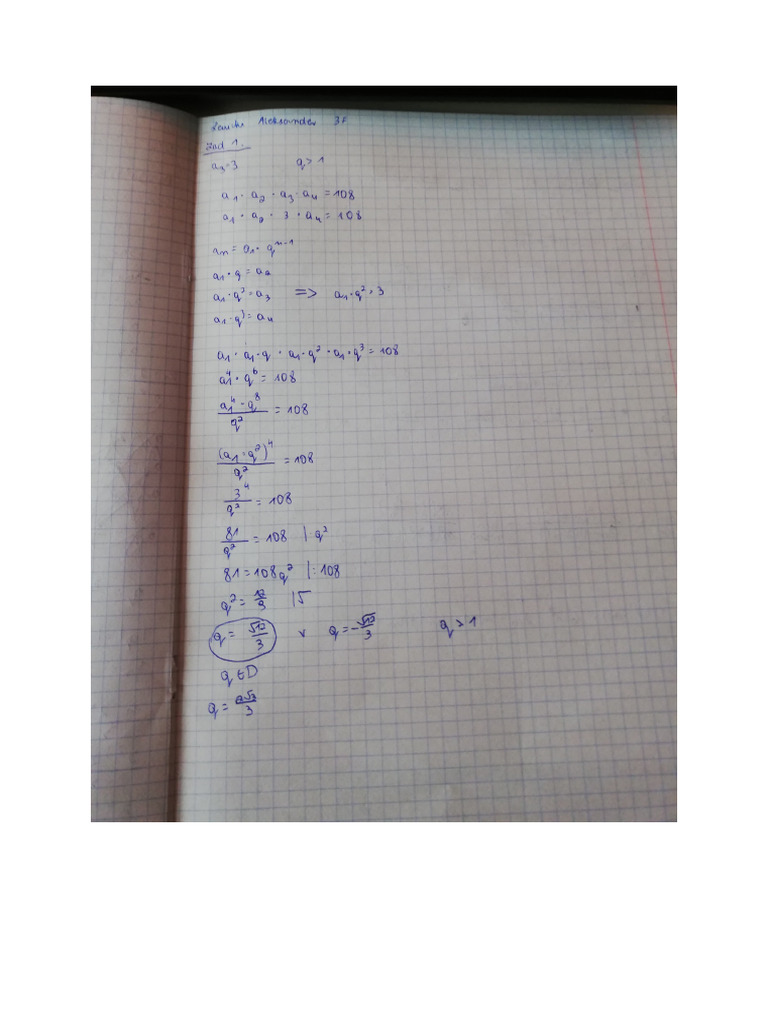 Aleksander 3F
Zad 1.
a₃=3 q>1
a₁·a₂·a₃·a₄=108
a₁·a₂·3·a₄=108
aₙ=a₁·qⁿ⁻¹
a₁·q=a₂
a₁·q²=a₃ => a₁·q²=3
a₁·q³=a₄
a₁·a₁·q·a₁·q²·a₁·q³=108
a₁⁴·q⁶=108
a₁⁴·q⁸/q²=108
(a₁·q²)⁴/q²=108
3⁴/q²=108
81/q²=108 |·q²
81=108q² |:108
q²=12/9 |√
q=√12/3 v q=-√12/3 q>1
q∈D
q=2√3/3